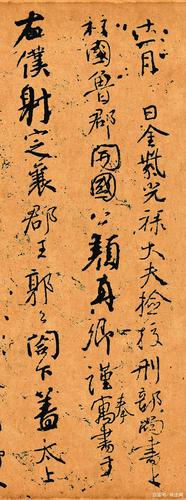 十一月 日金紫光祿大夫檢校刑部尚書上
柱國魯郡開國公顏真卿謹寓奉書于
右僕射定襄郡王郭公閤下蓋太上